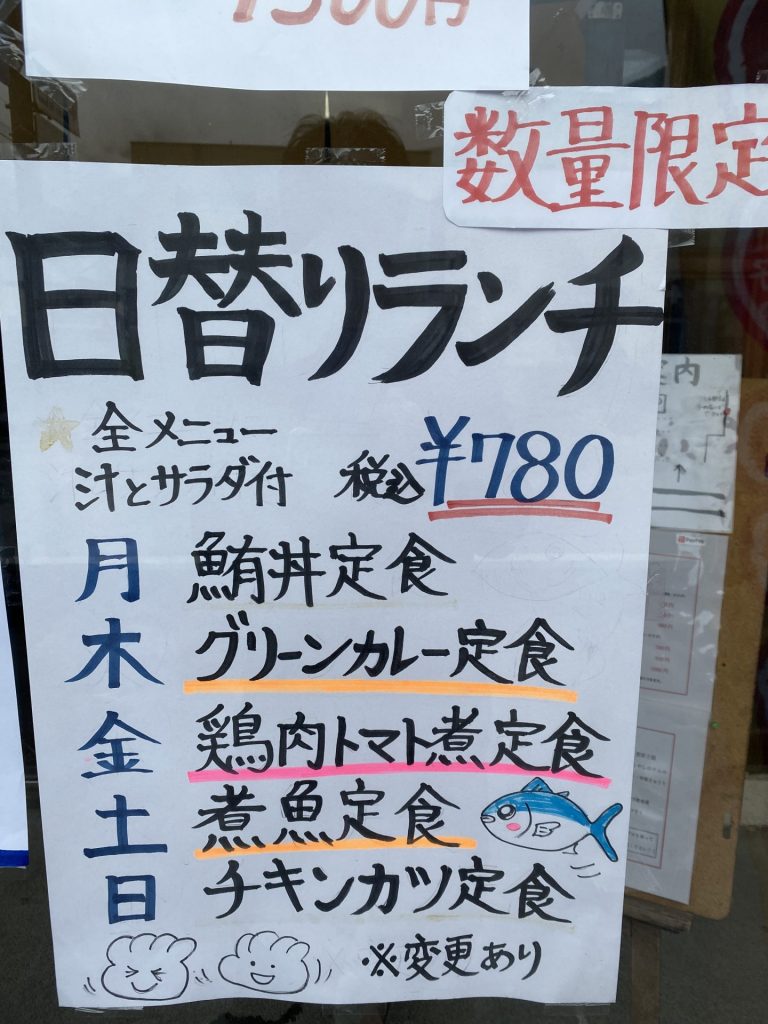 1500円
数量限定
日替りランチ
全メニュー
汁とサラダ付 税込 ¥780
月 鮪丼定食
木 グリーンカレー定食
金 鶏肉トマト煮定食
土 煮魚定食
日 チキンカツ定食
※変更あり
案内
PayPay